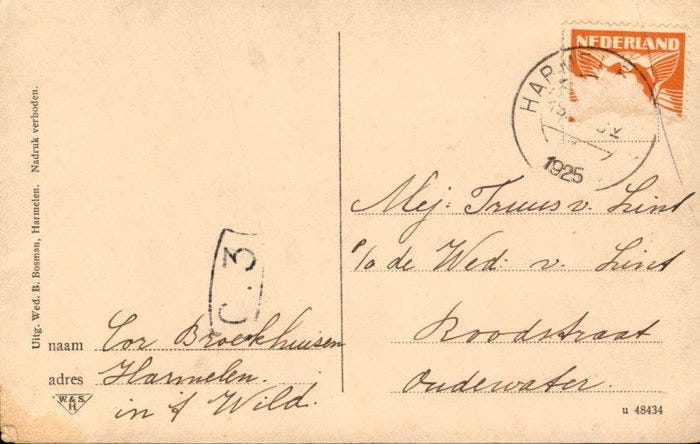 NEDERLAND
HARMELEN
1925
Mej: Truus v. Lint
p/a de Wed. v. Lint
Roodstraat
Oudewater.
C. 3
naam Cor Broekhuisen
adres Harmelen.
in 't Wild.
Uitg. Wed. B. Bosman, Harmelen. Nadruk verboden.
W. & S.
H
u 48434